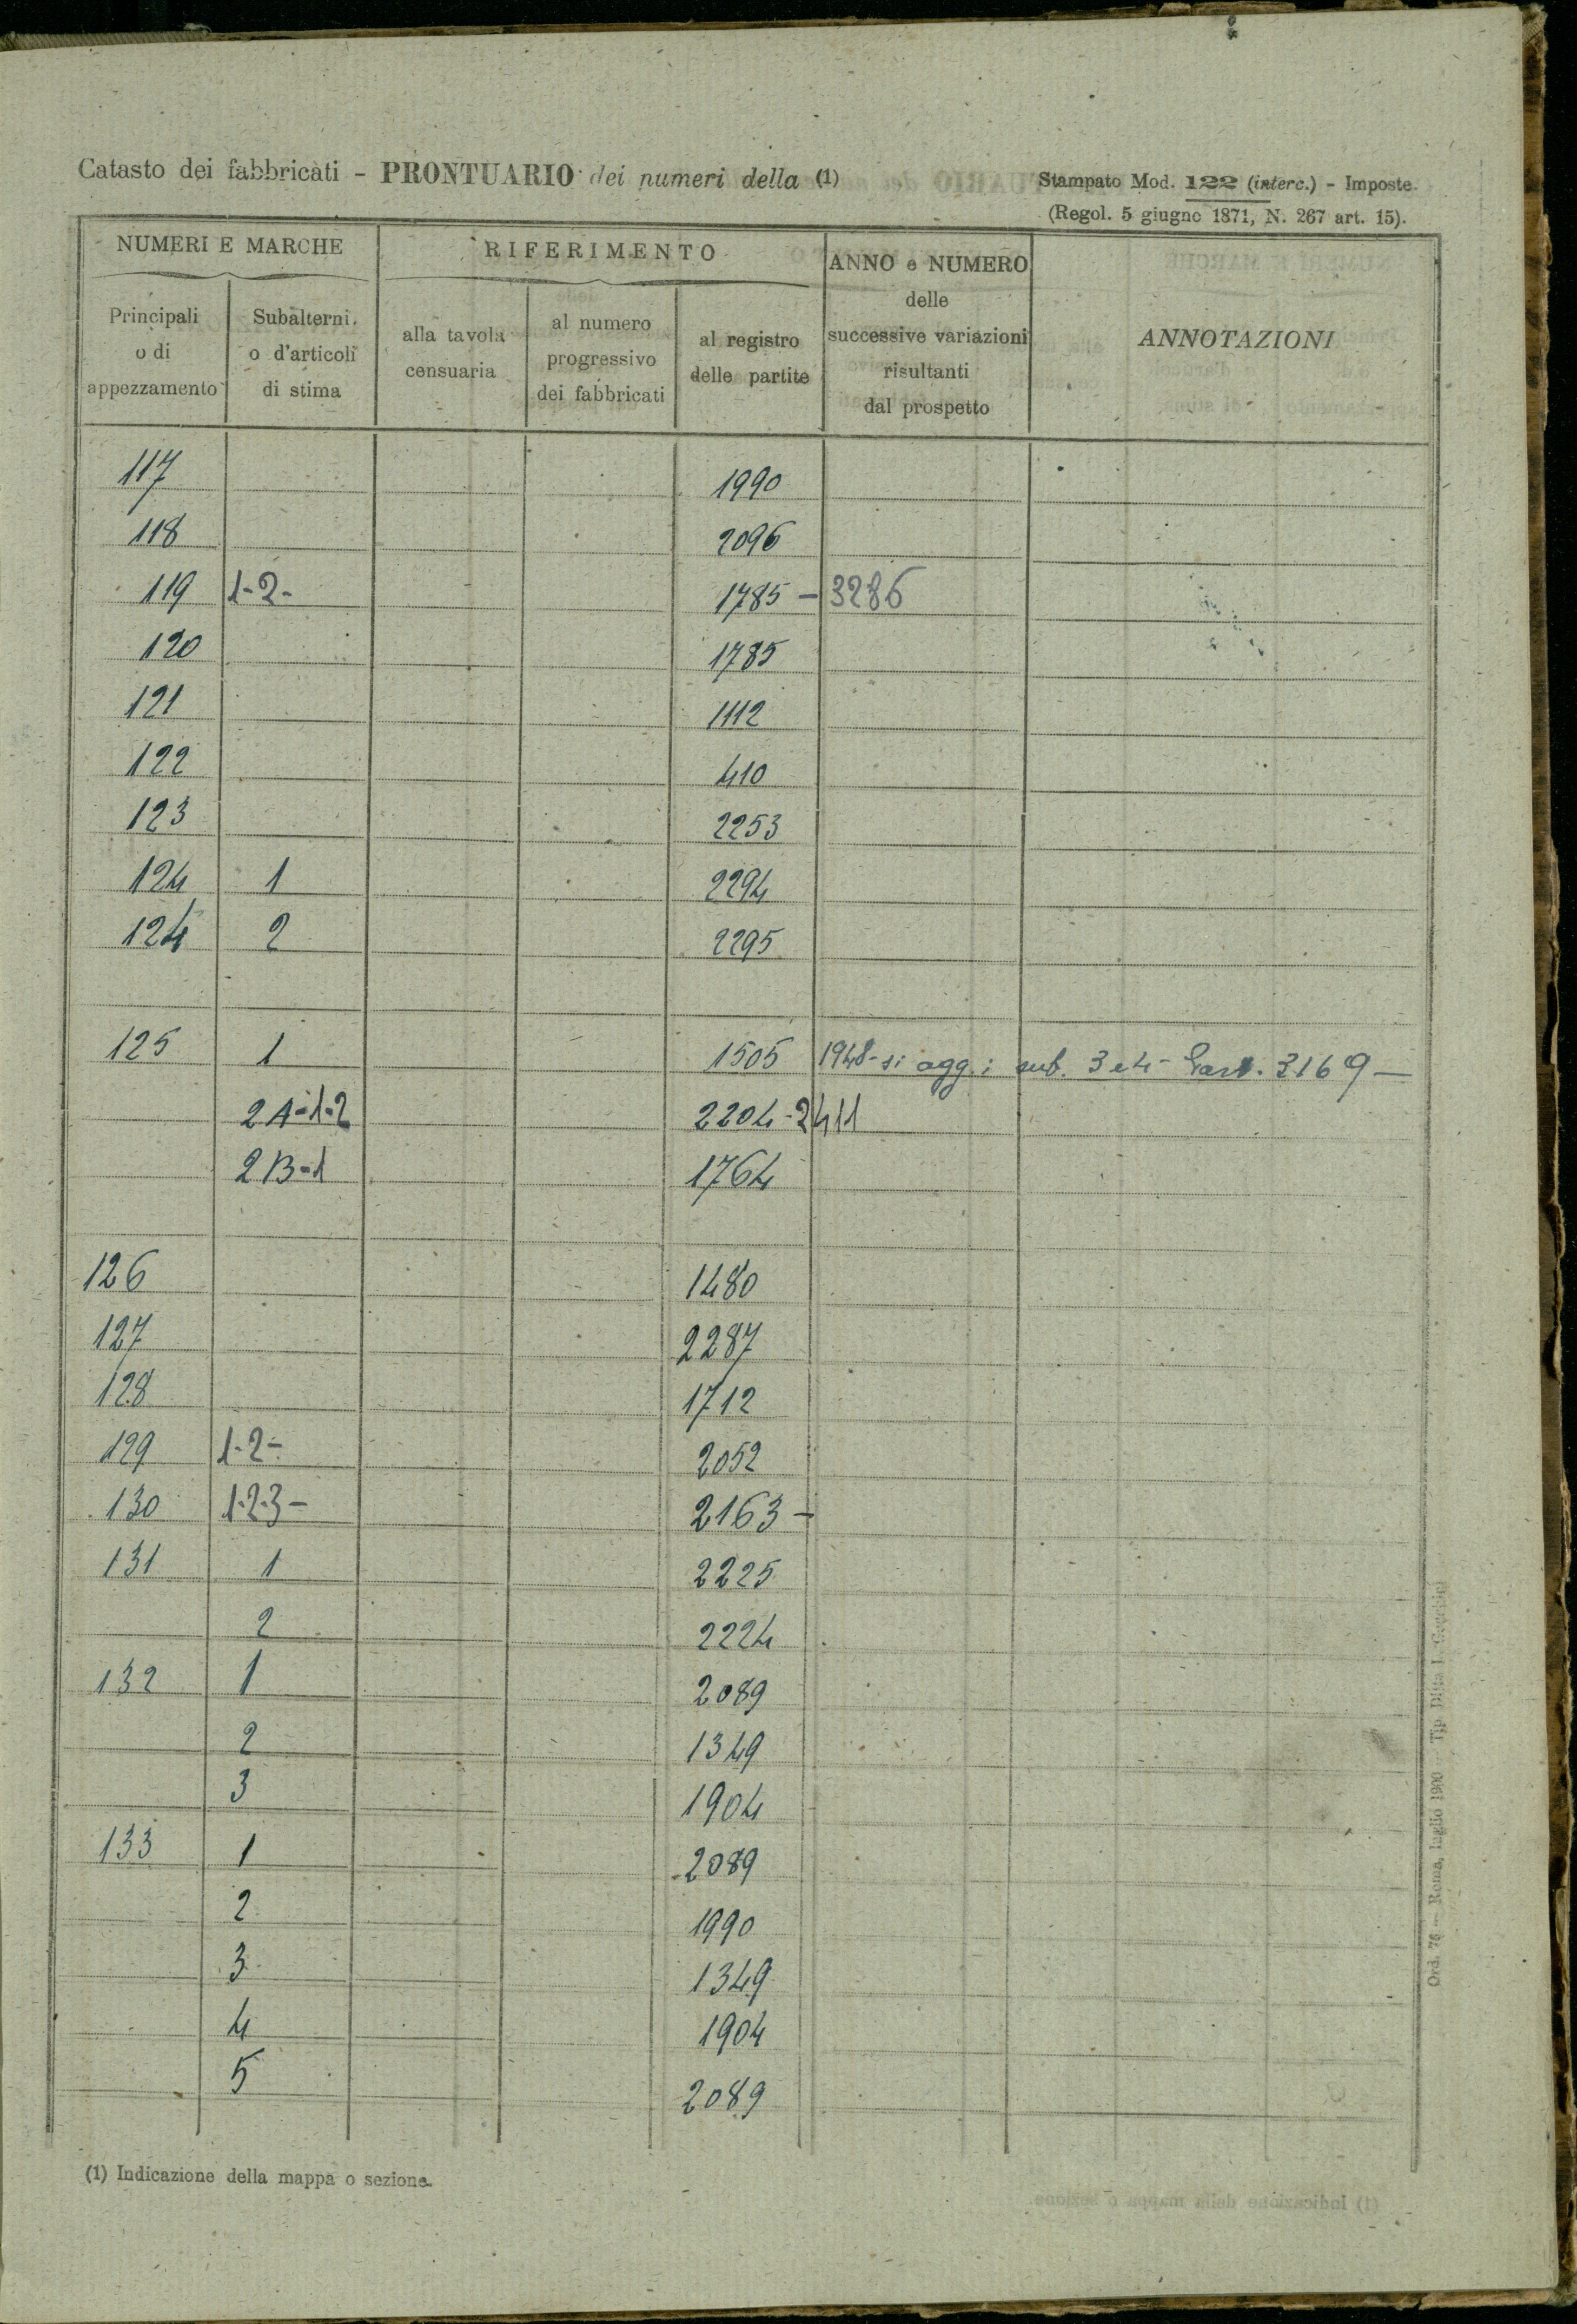 Catasto dei fabbricati - PRONTUARIO dei numeri della (1)
Stampato Mod. 122 (interc.) - Imposte.
(Regol. 5 giugno 1871, N. 267 art. 15).
NUMERI E MARCHE
RIFERIMENTO
ANNO e NUMERO
delle
successive variazioni
risultanti
dal prospetto
ANNOTAZIONI
Principali
o di
appezzamento
Subalterni
o d'articoli
di stima
alla tavola
censuaria
al numero
progressivo
dei fabbricati
al registro
delle partite
117 1990
118 2096
119 1-2- 1785 - 3286
120 1785
121 1112
122 410
123 2253
124 1 2294
124 2 2295
125 1 1505 1948 - si agg. i sub. 3 e 4 - Part. 3169 -
2A-1-2 2204-2411
2B-1 1764
126 1480
127 2287
128 1712
129 1-2- 2052
130 1-2-3- 2163 -
131 1 2225
2 2224
132 1 2089
2 1349
3 1904
133 1 2089
2 1990
3 1349
4 1904
5 2089
(1) Indicazione della mappa o sezione.
Ord. 76 - Roma, luglio 1900 Tip. Ditta L.